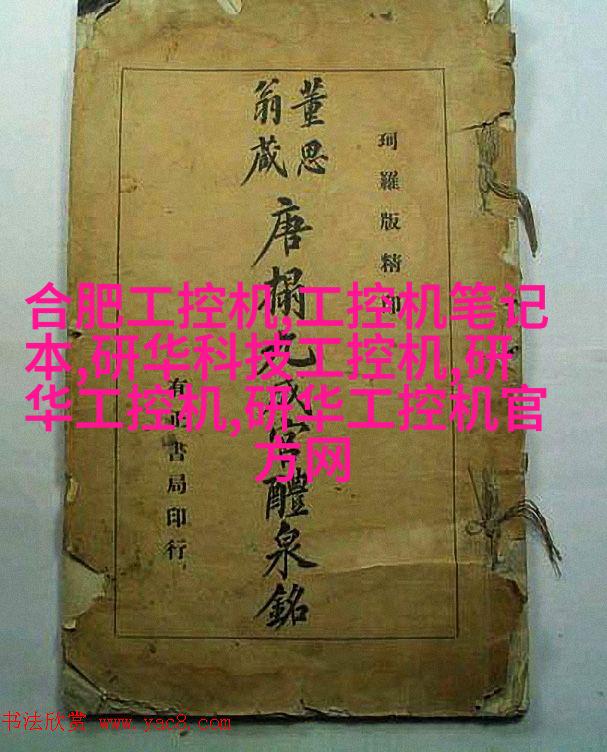 珂羅版精印
董思翁藏
唐榻九成宮醴泉銘
有正書局印行
合肥工控机,工控机笔记
本,研华科技工控机,研
华工控机,研华工控机官
方网
书法欣赏 www.yac8.com